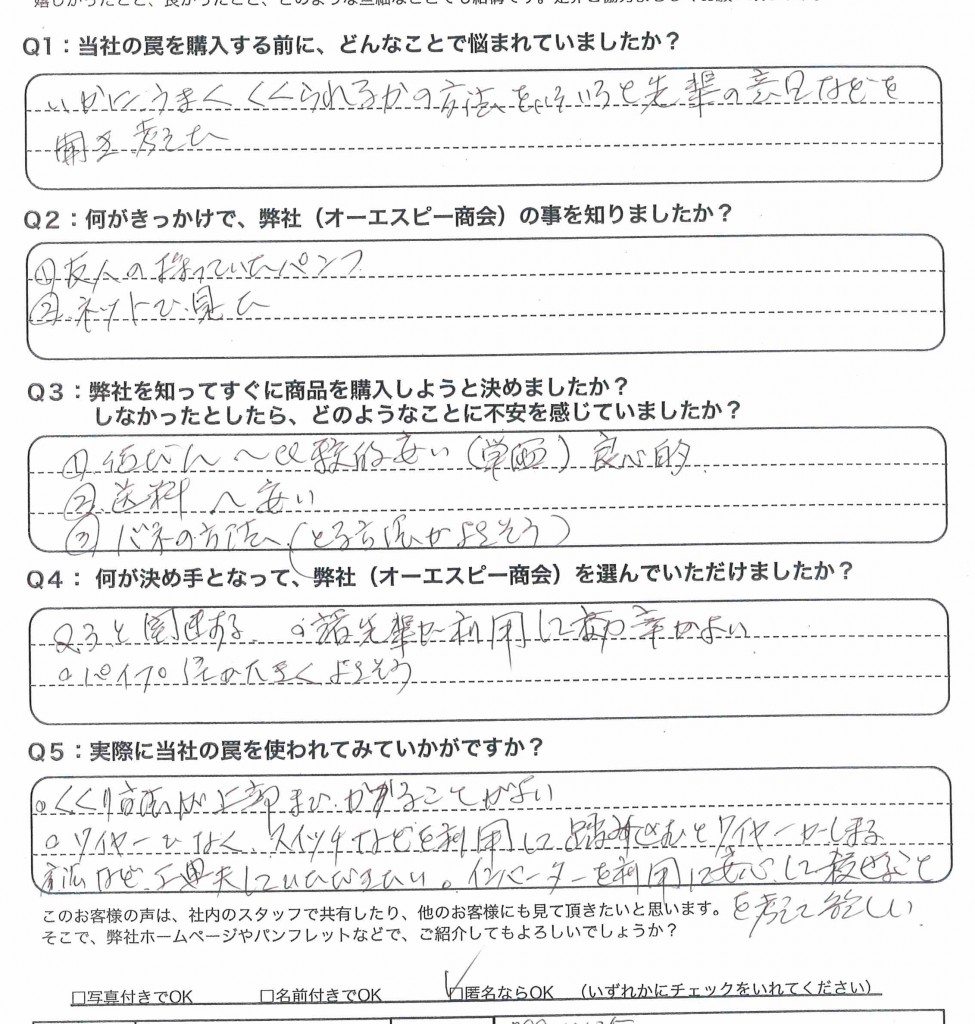 Q1：当社の罠を購入する前に、どんなことで悩まれていましたか？
いかにうまくくくられるかの方法をいろいろと先輩の意見などを
聞き考えた
Q2：何がきっかけで、弊社（オーエスピー商会）の事を知りましたか？
①友人の持っていたパンフ
②ネットで見た
Q3：弊社を知ってすぐに商品を購入しようと決めましたか？
しなかったとしたら、どのようなことに不安を感じていましたか？
① へ比較的安い（単価）良心的
②送料へ安い
③バネの方法へ（とる方法がよさそう）
Q4： 何が決め手となって、弊社（オーエスピー商会）を選んでいただけましたか？
Q.3と関連ある 。諸先輩が利用して 率がよい
。パイプ 大きくよさそう
Q5：実際に当社の罠を使われてみていかがですか？
。くくり方法が上部までがかることがよい
。ワイヤーでなく、スイッチなどを利用して 込むとワイヤーがしまる
方法など工夫していただきたい。インバーターを利用して安心して殺せること
を考えて欲しい
このお客様の声は、社内のスタッフで共有したり、他のお客様にも見て頂きたいと思います。
そこで、弊社ホームページやパンフレットなどで、ご紹介してもよろしいでしょうか？
□写真付きでOK □名前付きでOK □匿名ならOK （いずれかにチェックをいれてください）